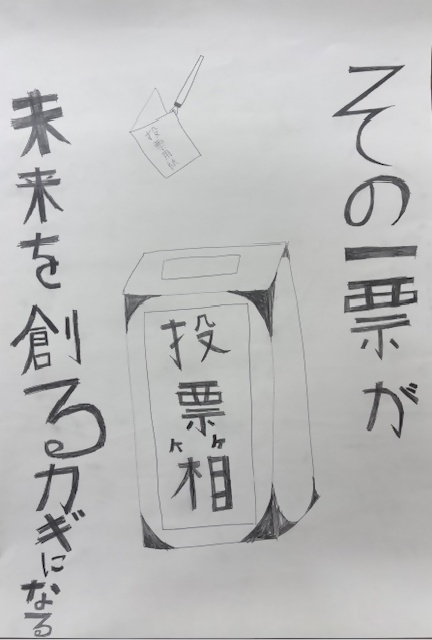 その一票が
投票用紙
投票箱
未来を創るカギになる